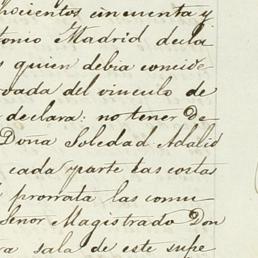 ocientos cincuenta y
tonio Madrid decla
s quien debia conside
rvada del vinculo de
declara: no tener De
Doña Soledad Adalid
cada parte las costas
prorrata las comu
Señor Magistrado Don
ra sala de este supe